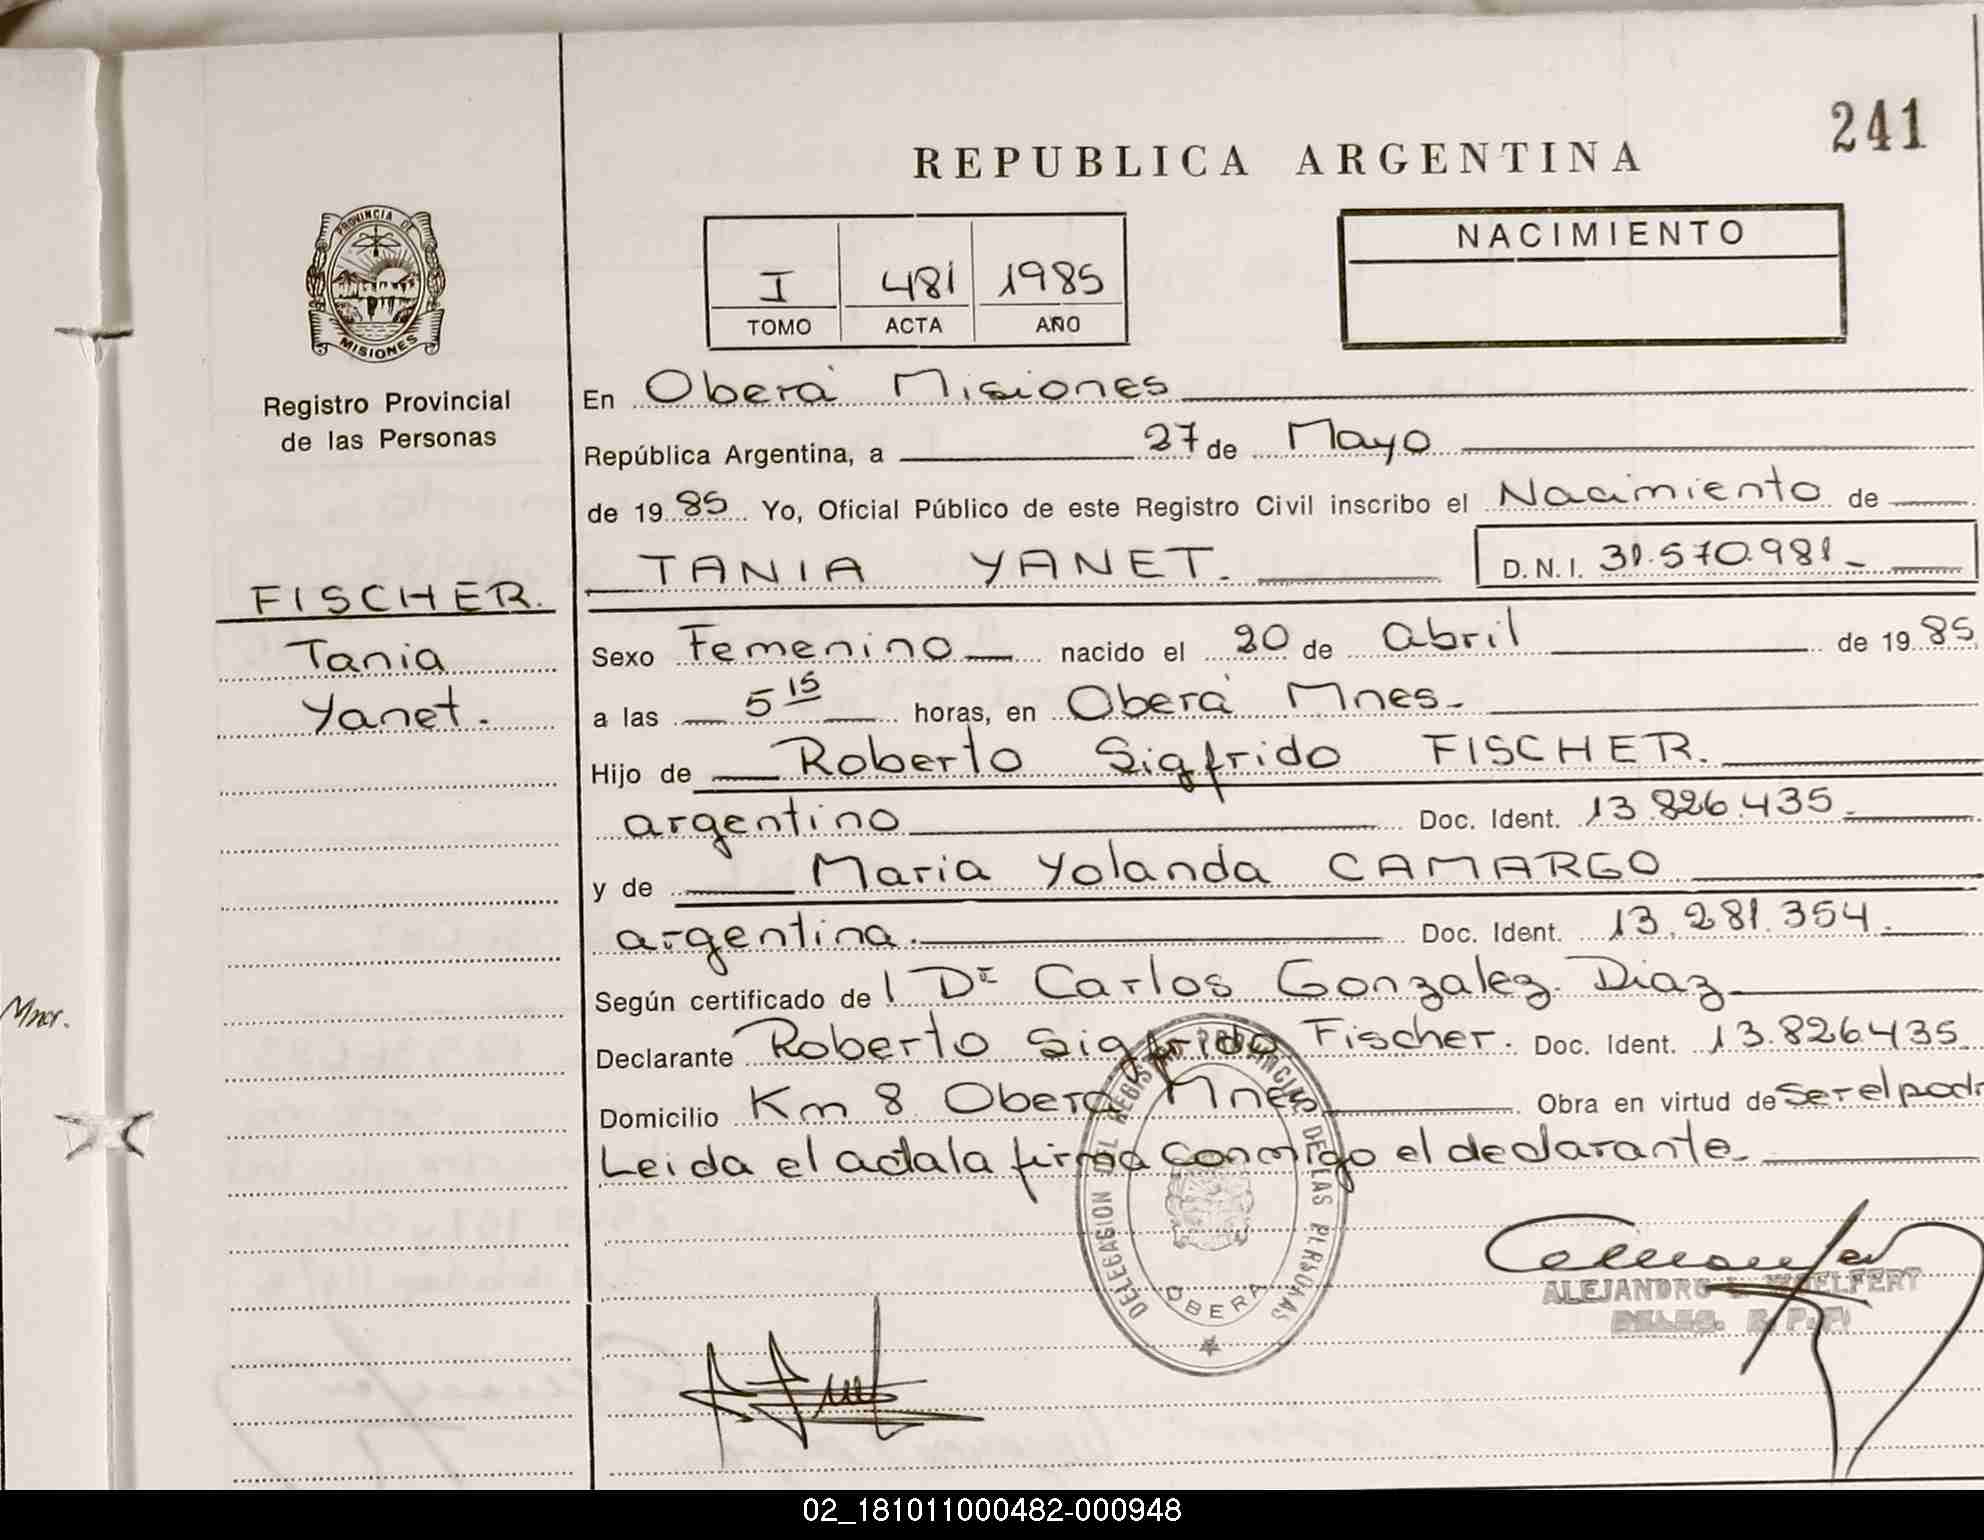 241
REPUBLICA ARGENTINA
PROVINCIA DE
MISIONES
Registro Provincial
de las Personas
I 481 1985
TOMO ACTA AÑO
NACIMIENTO
En Oberá Misiones
República Argentina, a 27 de Mayo
de 19 85 Yo, Oficial Público de este Registro Civil inscribo el Nacimiento de
TANIA YANET. D.N.I. 31.570.981
FISCHER.
Tania
Yanet.
Sexo Femenino nacido el 20 de abril de 19 85
a las 5 15 horas, en Oberá Mnes.
Hijo de Roberto Sigfrido FISCHER.
argentino Doc. Ident. 13.826.435
y de Maria Yolanda CAMARGO
argentina. Doc. Ident. 13.281.354.
Según certificado de l Dr Carlos Gonzalez Diaz
Declarante Roberto Sigfrido Fischer. Doc. Ident. 13.826435
Domicilio Km 8 Oberá Mnes Obra en virtud de ser el padr
Leida el acta la firma conmigo el declarante
DELEGASION DEL REGISTRO PROVINCIAL DE LAS PERSONAS
OBERA
ALEJANDRO WOELFERT
DELEG. R. P. P.
02_181011000482-000948